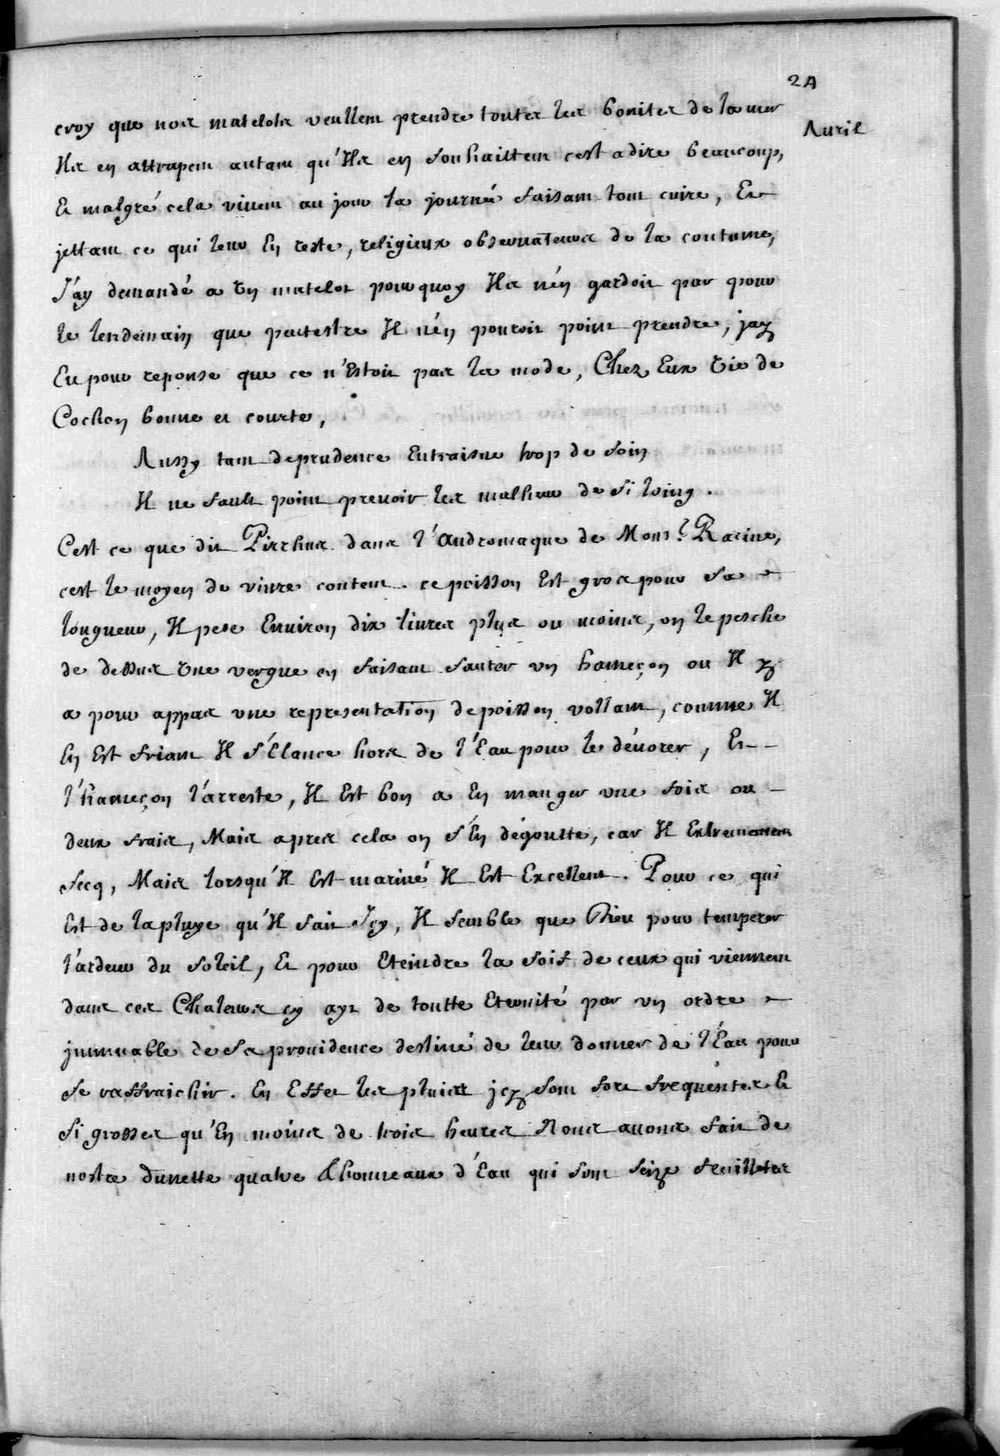 24
Avril
croy que nos matelots veullent prendre toutes les bonites de la mer
Ils en attrapent autant qu'Ils en souhaittent c'est a dire beaucoup,
Et malgré cela vivent au jour la journé faisant tout cuire, Et
jettant ce qui leur En reste, religieux observateurs de la coutume,
J'ay demandé a Un matelot pourquoy Ils n'én gardoit pas pour
le lendemain que peutestre Il n'én pouroit point prendre, jay
Eu pour reponse que ce n'Estoit pas la mode, Chez Eux Vie de
Cochon bonne et courte,
Aussy tant deprudence Entraisne trop de soin
Il ne fault point prevoir les malheur de si loing.
C'est ce que dit Pirrhus dans l'Andromaque de Mons.r Racine,
c'est le moyen de vivre content. ce poisson Est gros pour sa
longueur, Il pese Environ dix livres plus ou moins, on le pesche
de dessus Une vergue en faisant sauter un hameçon ou Il y
a pour appas une representation de poisson vollant, comme Il
En Est friant Il s'élance hors de l'Eau pour le dévorer, Et
l'hameçon l'arreste, Il Est bon a En manger une fois ou
deux frais, Mais apres cela on s'En dégoutte, car Il Extremement
secq, Mais lorsqu'Il Est mariné Il Est Excellent. Pour ce qui
Est de la pluye qu'Il fait Icy, Il semble que Dieu pour temperer
l'ardeur du soleil, Et pour Eteindre la soif de ceux qui viennent
dans ces Chaleurs cy ayt de toutte Eternité par un ordre
jmmuable de sa providence destiné de leur donner de l'Éau pour
se raffraichir. En Effet les pluies jcy sont fort frequéntes Et
si grosses qu'En moins de trois heures Nous avons fait de
nostre dunette quatre thonneaux d'Eau qui font seize feuillettes